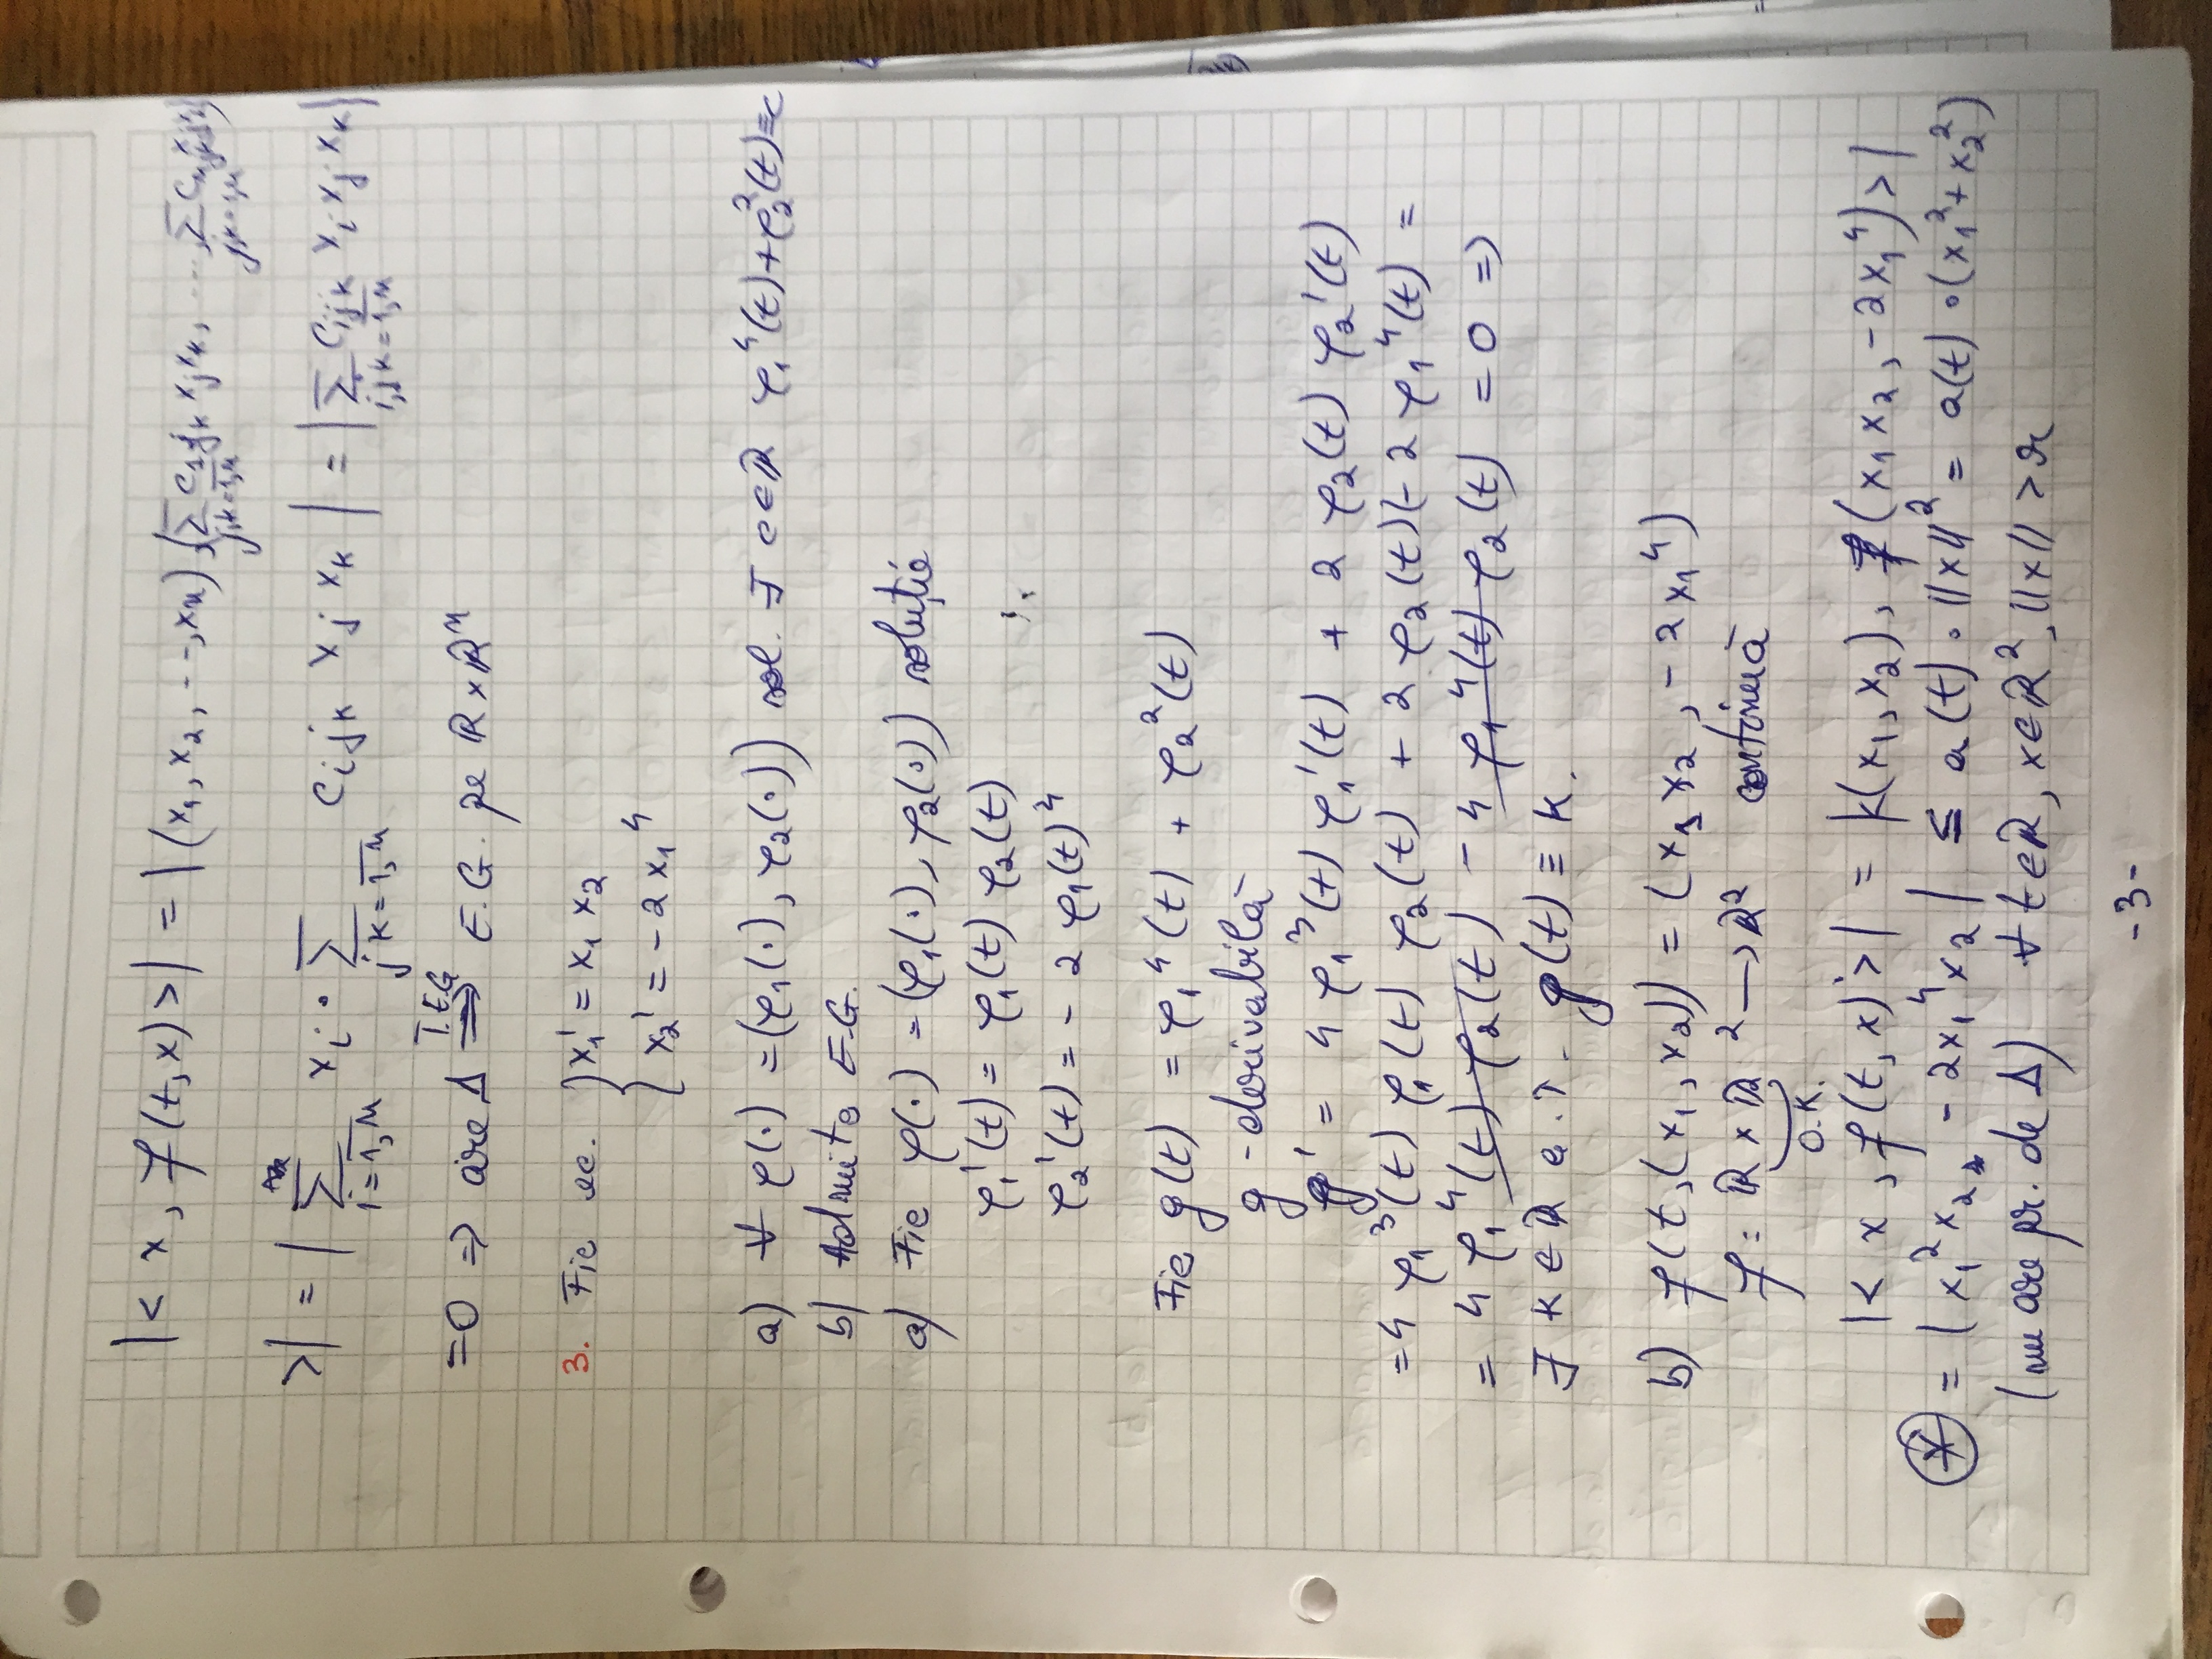 |< x, f(t,x) >| = |(x₁, x₂, --, xₙ), (∑_{j,k=1,n} c₁jk xj xk, ..., ∑_{j,k=1,n} cₙjk xj xk)
>| = | ∑_{i=1,n} xi · ∑_{jk=1,n} cijk xj xk | = | ∑_{i,jk=1,n} cijk xi xj xk |
=0 ⇒ are Δ ⇒^{T.E.G} E.G. pe ℝ×ℝⁿ
3. Fie ec. { x₁' = x₁ x₂
x₂' = -2 x₁⁴
a) ∀ φ(·) = (φ₁(·), φ₂(·)) sol. ∃ c∈ℝ φ₁⁴(t)+φ₂²(t)≡c
b) Admite E.G.
a) Fie φ(·) = (φ₁(·), φ₂(·)) soluție
φ₁'(t) = φ₁(t) φ₂(t)
φ₂'(t) = - 2 φ₁(t)⁴
Fie g(t) = φ₁⁴(t) + φ₂²(t)
g - derivabilă
g' = 4 φ₁³(t) φ₁'(t) + 2 φ₂(t) φ₂'(t)
=4 φ₁³(t) φ₁(t) φ₂(t) + 2 φ₂(t)(-2 φ₁⁴(t) =
= 4 φ₁⁴(t) φ₂(t) - 4 φ₁⁴(t) φ₂(t) = 0 ⇒
∃ k∈ℝ a.î. g(t) ≡ k.
b) f(t,(x₁,x₂)) = (x₁ x₂, -2x₁⁴)
f = ℝ×ℝ² → ℝ² continuă
O.K.
|< x, f(t,x) >| = |<(x₁,x₂), (x₁x₂, -2x₁⁴) >|
* = | x₁²x₂ - 2x₁⁴x₂ | ≤ a(t)·||x||² = a(t)·(x₁²+x₂²)
(nu are pr. de Δ) ∀ t∈ℝ, x∈ℝ², ||x|| > r
-3-